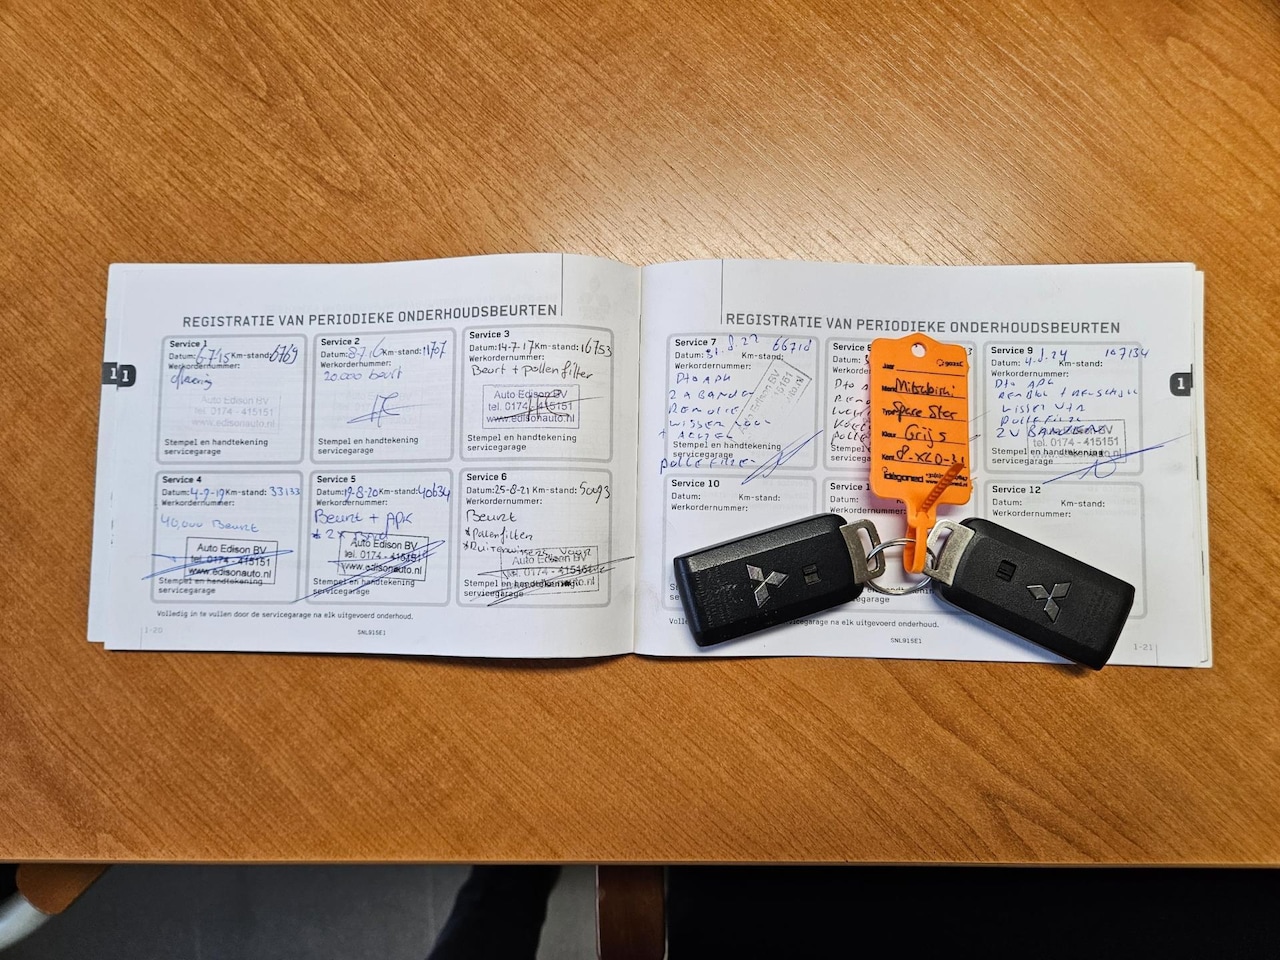 REGISTRATIE VAN PERIODIEKE ONDERHOUDSBEURTEN
1
1
Service 1
Datum: 6-7-15 Km-stand: 6769
Werkordernummer:
Auto Edison BV
tel. 0174 - 415151
www.edisonauto.nl
Stempel en handtekening
servicegarage
Service 2
Datum: 8-7-16 Km-stand: 11707
Werkordernummer:
20.000 beurt
Stempel en handtekening
servicegarage
Service 3
Datum: 14-7-17 Km-stand: 16753
Werkordernummer:
Beurt + pollenfilter
Auto Edison BV
tel. 0174 - 415151
www.edisonauto.nl
Stempel en handtekening
servicegarage
Service 4
Datum: 4-7-19 Km-stand: 33133
Werkordernummer:
40,000 Beurt
Auto Edison BV
tel. 0174 - 415151
www.edisonauto.nl
Stempel en handtekening
servicegarage
Service 5
Datum: 19-8-20 Km-stand: 40634
Werkordernummer:
Beurt + APK
* 2x
Auto Edison BV
tel. 0174 - 415151
www.edisonauto.nl
Stempel en handtekening
servicegarage
Service 6
Datum: 25-8-21 Km-stand: 50093
Werkordernummer:
Beurt
* Pollenfilter
* Ruitenwissers voor
Auto Edison BV
tel. 0174 - 415151
Stempel en handtekening
servicegarage
Volledig in te vullen door de servicegarage na elk uitgevoerd onderhoud.
1-20
SNL915E1
REGISTRATIE VAN PERIODIEKE ONDERHOUDSBEURTEN
1
Service 7
Datum: 31.8.22 Km-stand: 66718
Werkordernummer:
APK
2 x BANDEN
WISSER VOOR
Auto Edison BV
Stempel en handtekening
servicegarage
POLLEFILTER
Service
Datum:
Werkordernummer
Stempel
service
Service 9
Datum: 4.9.24 Km-stand: 107134
Werkordernummer:
APK
WISSER V+A
POLLEFILTER
2 x BANDEN
tel. 0174 - 415151
Stempel en handtekening
servicegarage
Service 10
Datum: Km-stand:
Werkordernummer:
Service 1
Datum:
Werkordernummer
Service 12
Datum: Km-stand:
Werkordernummer:
Jaar
Merk Mitsubishi
Type Space Star
Kleur Grijs
Kent. 8-XLD-31
servicegarage na elk uitgevoerd onderhoud.
SNL915E1
1-21